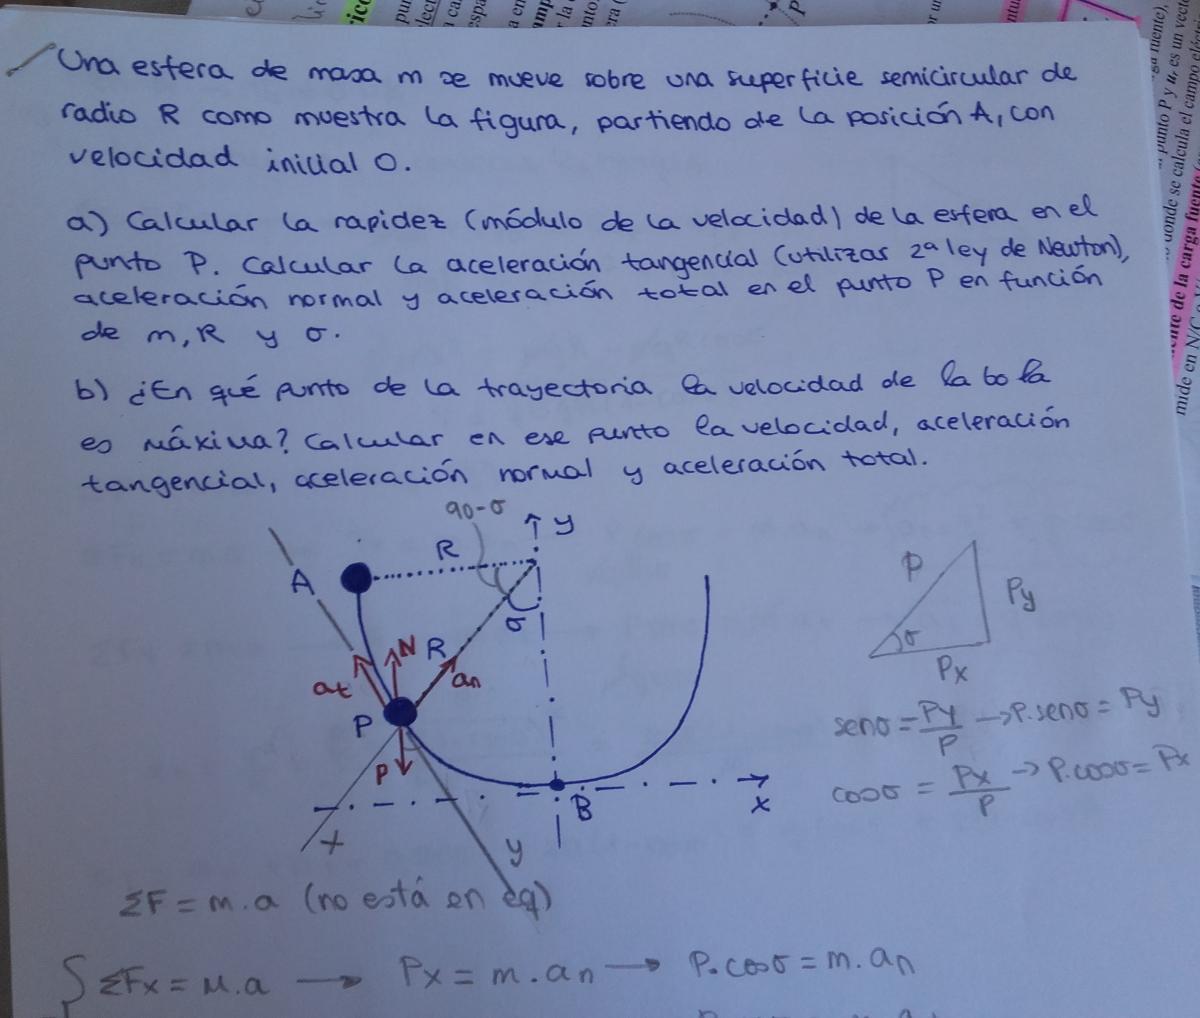 Una esfera de masa m se mueve sobre una superficie semicircular de
radio R como muestra la figura, partiendo de la posición A, con
velocidad inicial 0.
a) Calcular la rapidez (módulo de la velocidad) de la esfera en el
punto P. Calcular la aceleración tangencial (utilizas 2ª ley de Newton),
aceleración normal y aceleración total en el punto P en función
de m, R y σ.
b) ¿En qué punto de la trayectoria la velocidad de la bola
es máxima? Calcular en ese punto la velocidad, aceleración
tangencial, aceleración normal y aceleración total.
90-σ
y
R
A
σ
N
R
at
an
P
P
B
x
x
y
P
Py
σ
Px
senσ = Py/P → P.senσ = Py
cosσ = Px/P → P.cosσ = Px
ΣF = m.a (no está en eq)
ΣFx = m.a → Px = m.an → P.cosσ = m.an
punto P y
donde se calcula el campo
mide en N/C